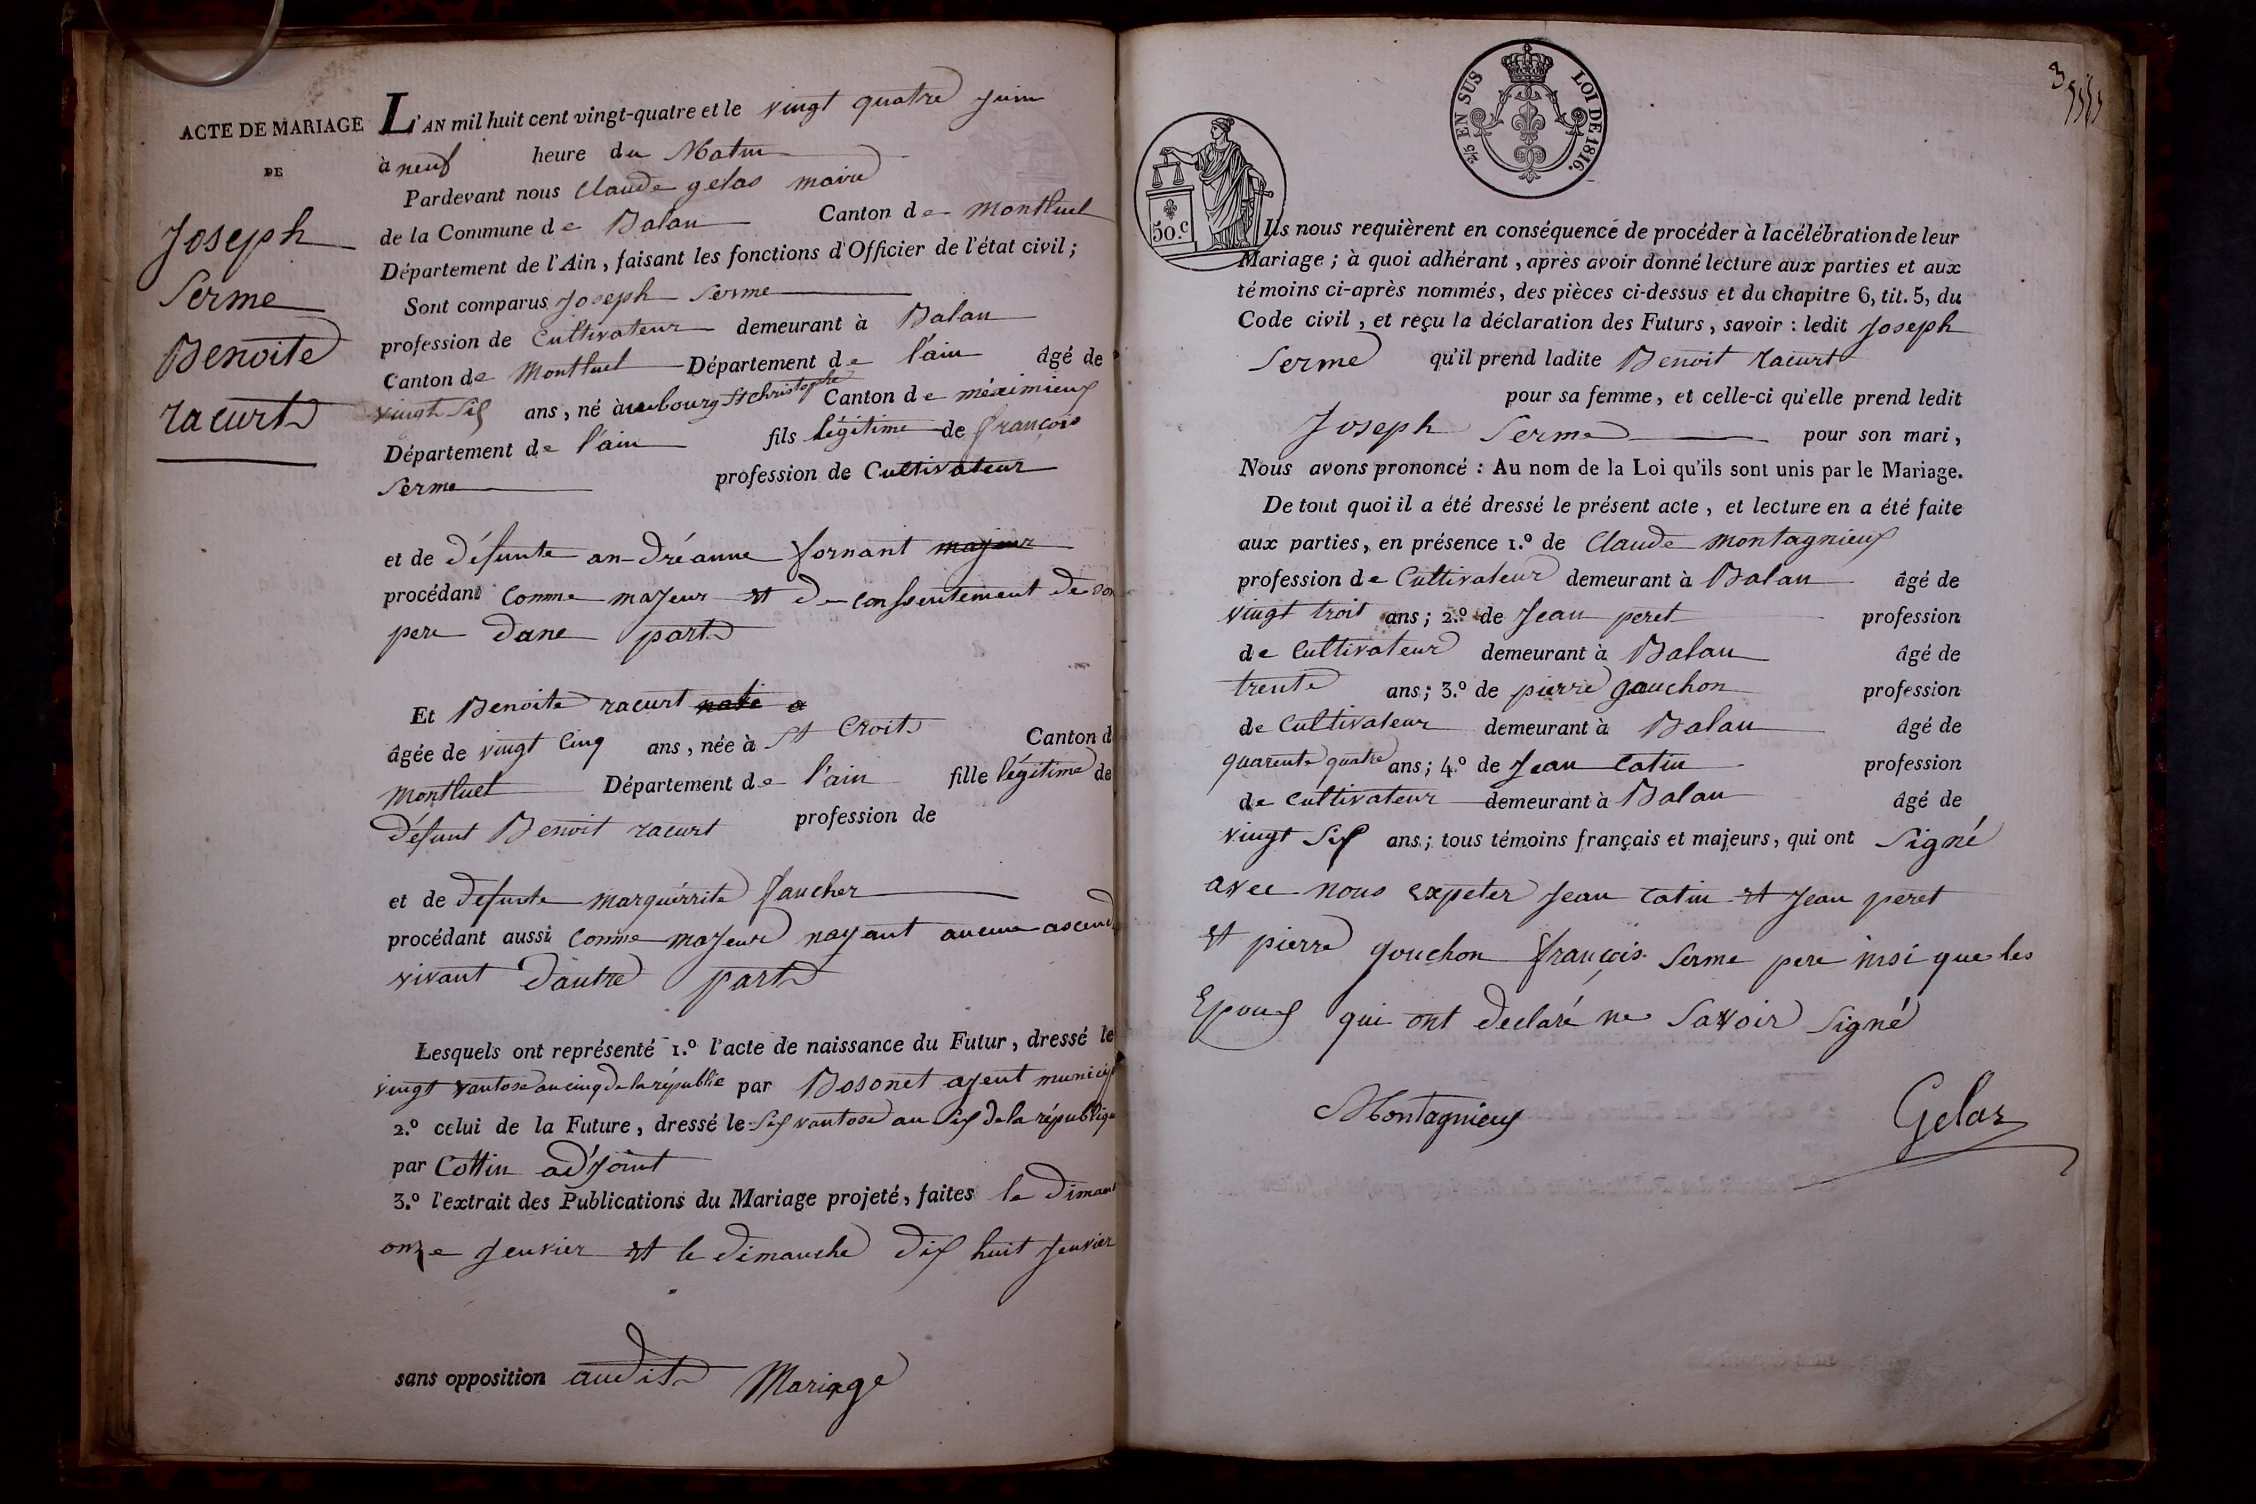 ACTE DE MARIAGE
DE
Joseph
Serme
Benoite
racurt
L'AN mil huit cent vingt-quatre et le vingt quatre Juin
à neuf heure du Matin
Pardevant nous Claude gelas maire
de la Commune de Balan Canton de Montluel
Département de l'Ain, faisant les fonctions d'Officier de l'état civil;
Sont comparus Joseph Serme
profession de Cultivateur demeurant à Balan
Canton de Montluel Département de l'ain âgé de
vingt Six ans, né à bourg St christophe Canton de méximieux
Département de l'ain fils légitime de françois
Serme profession de Cultivateur
et de défunte an-dréanne fornant majeur
procédant Comme majeur et de Conssentement de son
pere dane part
Et Benoite racurt
âgée de vingt Cinq ans, née à St Croit Canton d
Montluel Département de l'ain fille légitime de
défunt Benoit racurt profession de
et de defunte marguérrite faucher
procédant aussi Comme majeur nayant aucune ascend
vivant dautre part
Lesquels ont représenté 1.º l'acte de naissance du Futur, dressé le
vingt vantose an cinq de la républic par Bosonet ajent municip
2.º celui de la Future, dressé le Six vantose an Six de la républiqu
par Cottin adjoint
3.º l'extrait des Publications du Mariage projeté, faites le dimanch
onze Jenvier et le dimanche dix huit Jenvier
sans opposition audit Mariage
2/5 EN SUS LOI DE 1816.
50.c
3
Ils nous requièrent en conséquence de procéder à la célébration de leur
Mariage; à quoi adhérant, après avoir donné lecture aux parties et aux
témoins ci-après nommés, des pièces ci-dessus et du chapitre 6, tit. 5, du
Code civil, et reçu la déclaration des Futurs, savoir: ledit Joseph
Serme qu'il prend ladite Benoit racurt
pour sa femme, et celle-ci qu'elle prend ledit
Joseph Serme pour son mari,
Nous avons prononcé: Au nom de la Loi qu'ils sont unis par le Mariage.
De tout quoi il a été dressé le présent acte, et lecture en a été faite
aux parties, en présence 1.º de Claude Montagnieux
profession de Cultivateur demeurant à Balan âgé de
vingt troit ans; 2.º de Jean peret profession
de Cultivateur demeurant à Balan âgé de
trente ans; 3.º de pierre gouchon profession
de Cultivateur demeurant à Balan âgé de
quarente quatre ans; 4.º de Jean Catin profession
de Cultivateur demeurant à Balan âgé de
vingt Six ans; tous témoins français et majeurs, qui ont Signé
avec nous expeter Jean Catin et Jean peret
et pierre gouchon françois Serme pere insi que les
Epoux qui ont déclaré ne Savoir Signé
Montagnieux
Gelas